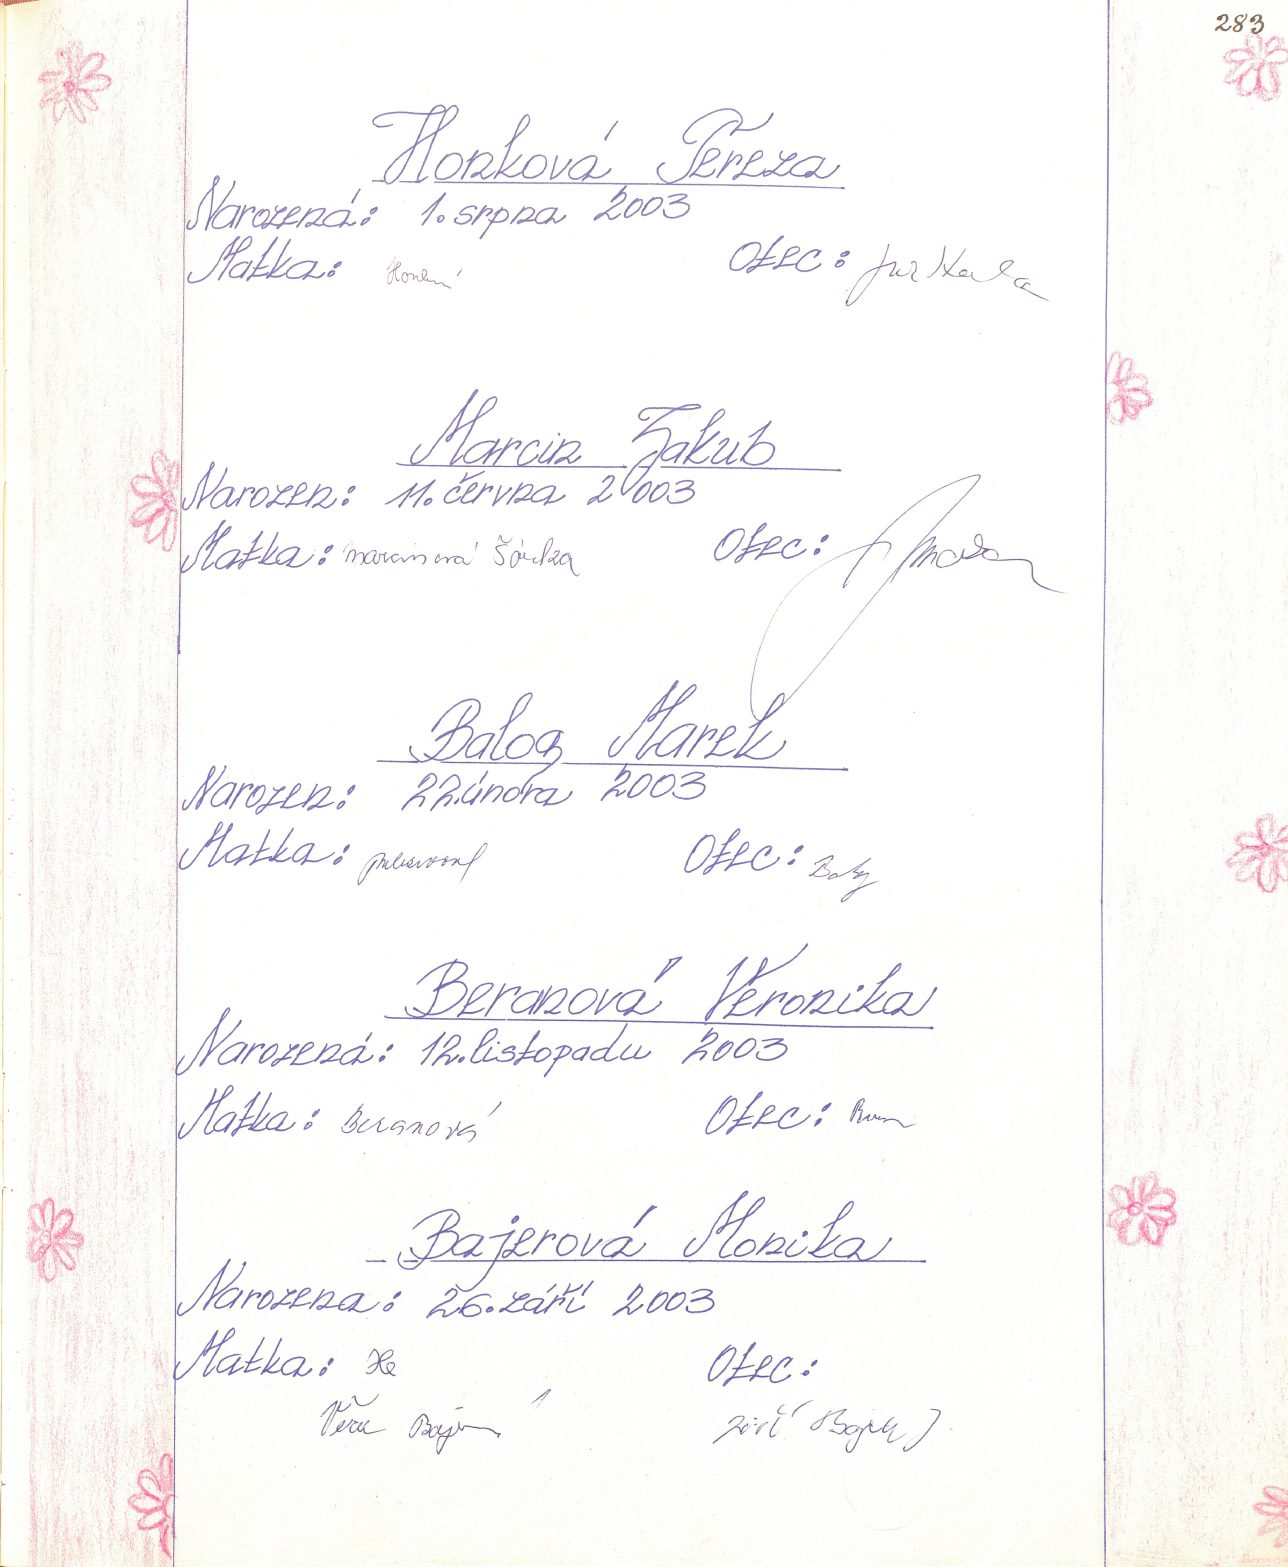 283
Horková Tereza
Narozená: 1. srpna 2003
Matka: Otec:
Marcin Jakub
Narozen: 11. června 2003
Matka: Marcinová Šárka Otec:
Balog Marek
Narozen: 22. února 2003
Matka: Otec:
Beranová Veronika
Narozená: 12. listopadu 2003
Matka: Beranová Otec:
Bajerová Monika
Narozena: 26. září 2003
Matka: Otec:
Věra Jiří